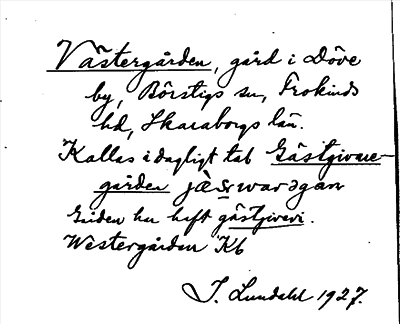 Västergården, gård i Döve
by, Börstigs sn, Frökinds
hd, Skaraborgs län.
Kallas i dagligt tal Gästgivare-
gården
Gården har haft gästgiveri.
Westergården Kb
J. Lundahl 1927.